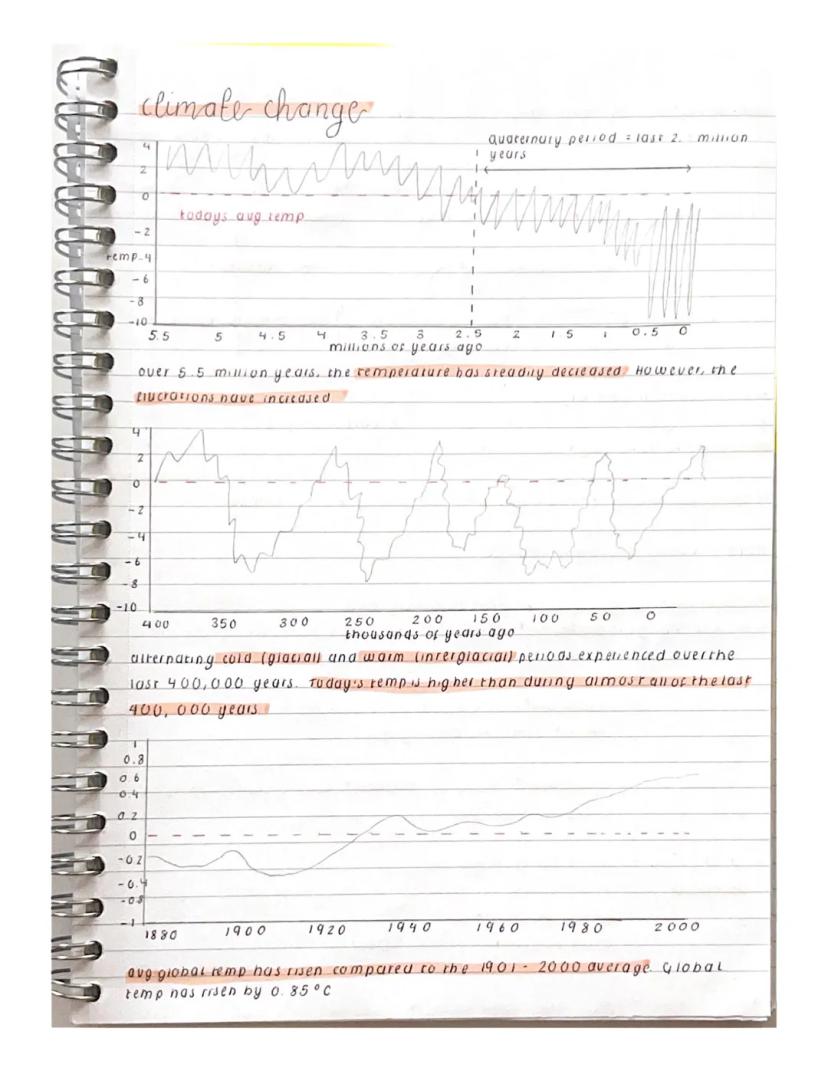 climate change
quaternary period = last 2. million
years
4
2
0
todays avg temp
-2
temp-4
-6
-8
-10
5.5 5 4.5 4 3.5 3 2.5 2 1 5 1 0.5 0
millions of years ago
over 5.5 million years, the temperature has steadily decreased. However, the
fluctations have increased
4
2
0
-2
-4
-6
-8
-10
400 350 300 250 200 150 100 50 0
thousands of years ago
alternating cold (glacial) and warm (interglacial) periods experienced over the
last 400,000 years. Today's temp is higher than during almost all of the last
400,000 years.
1
0.8
0.6
0.4
0.2
0
-0.2
-0.4
-0.8
-1
1880 1900 1920 1940 1960 1980 2000
avg global temp has risen compared to the 1901 - 2000 average. Global
temp has risen by 0.85°C